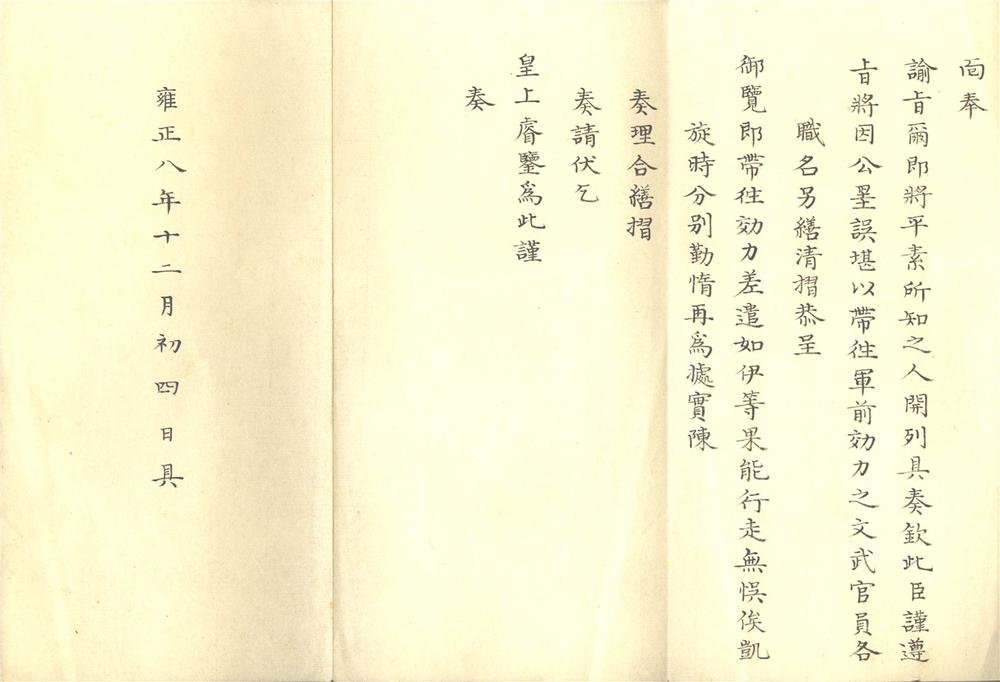 面奉
諭旨爾即將平素所知之人開列具奏欽此臣謹遵
旨將因公罣誤堪以帶往軍前効力之文武官員各
職名另繕清摺恭呈
御覽即帶往効力差遣如伊等果能行走無悞俟凱
旋時分別勤惰再為據實陳
奏理合繕摺
奏請伏乞
皇上睿鑒為此謹
奏
雍正八年十二月初四日具